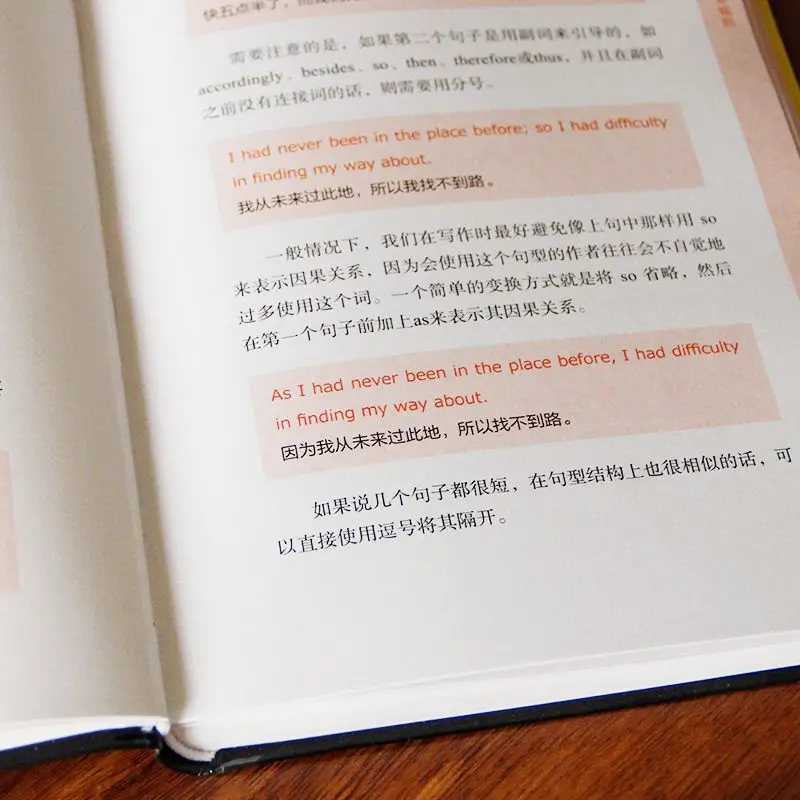 快五点半了，
需要注意的是，如果第二个句子是用副词来引导的，如
accordingly、besides、so、then、therefore或thus，并且在副词
之前没有连接词的话，则需要用分号。
I had never been in the place before; so I had difficulty
in finding my way about.
我从未来过此地，所以我找不到路。
一般情况下，我们在写作时最好避免像上句中那样用 so
来表示因果关系，因为会使用这个句型的作者往往会不自觉地
过多使用这个词。一个简单的变换方式就是将 so 省略，然后
在第一个句子前加上as来表示其因果关系。
As I had never been in the place before, I had difficulty
in finding my way about.
因为我从未来过此地，所以找不到路。
如果说几个句子都很短，在句型结构上也很相似的话，可
以直接使用逗号将其隔开。